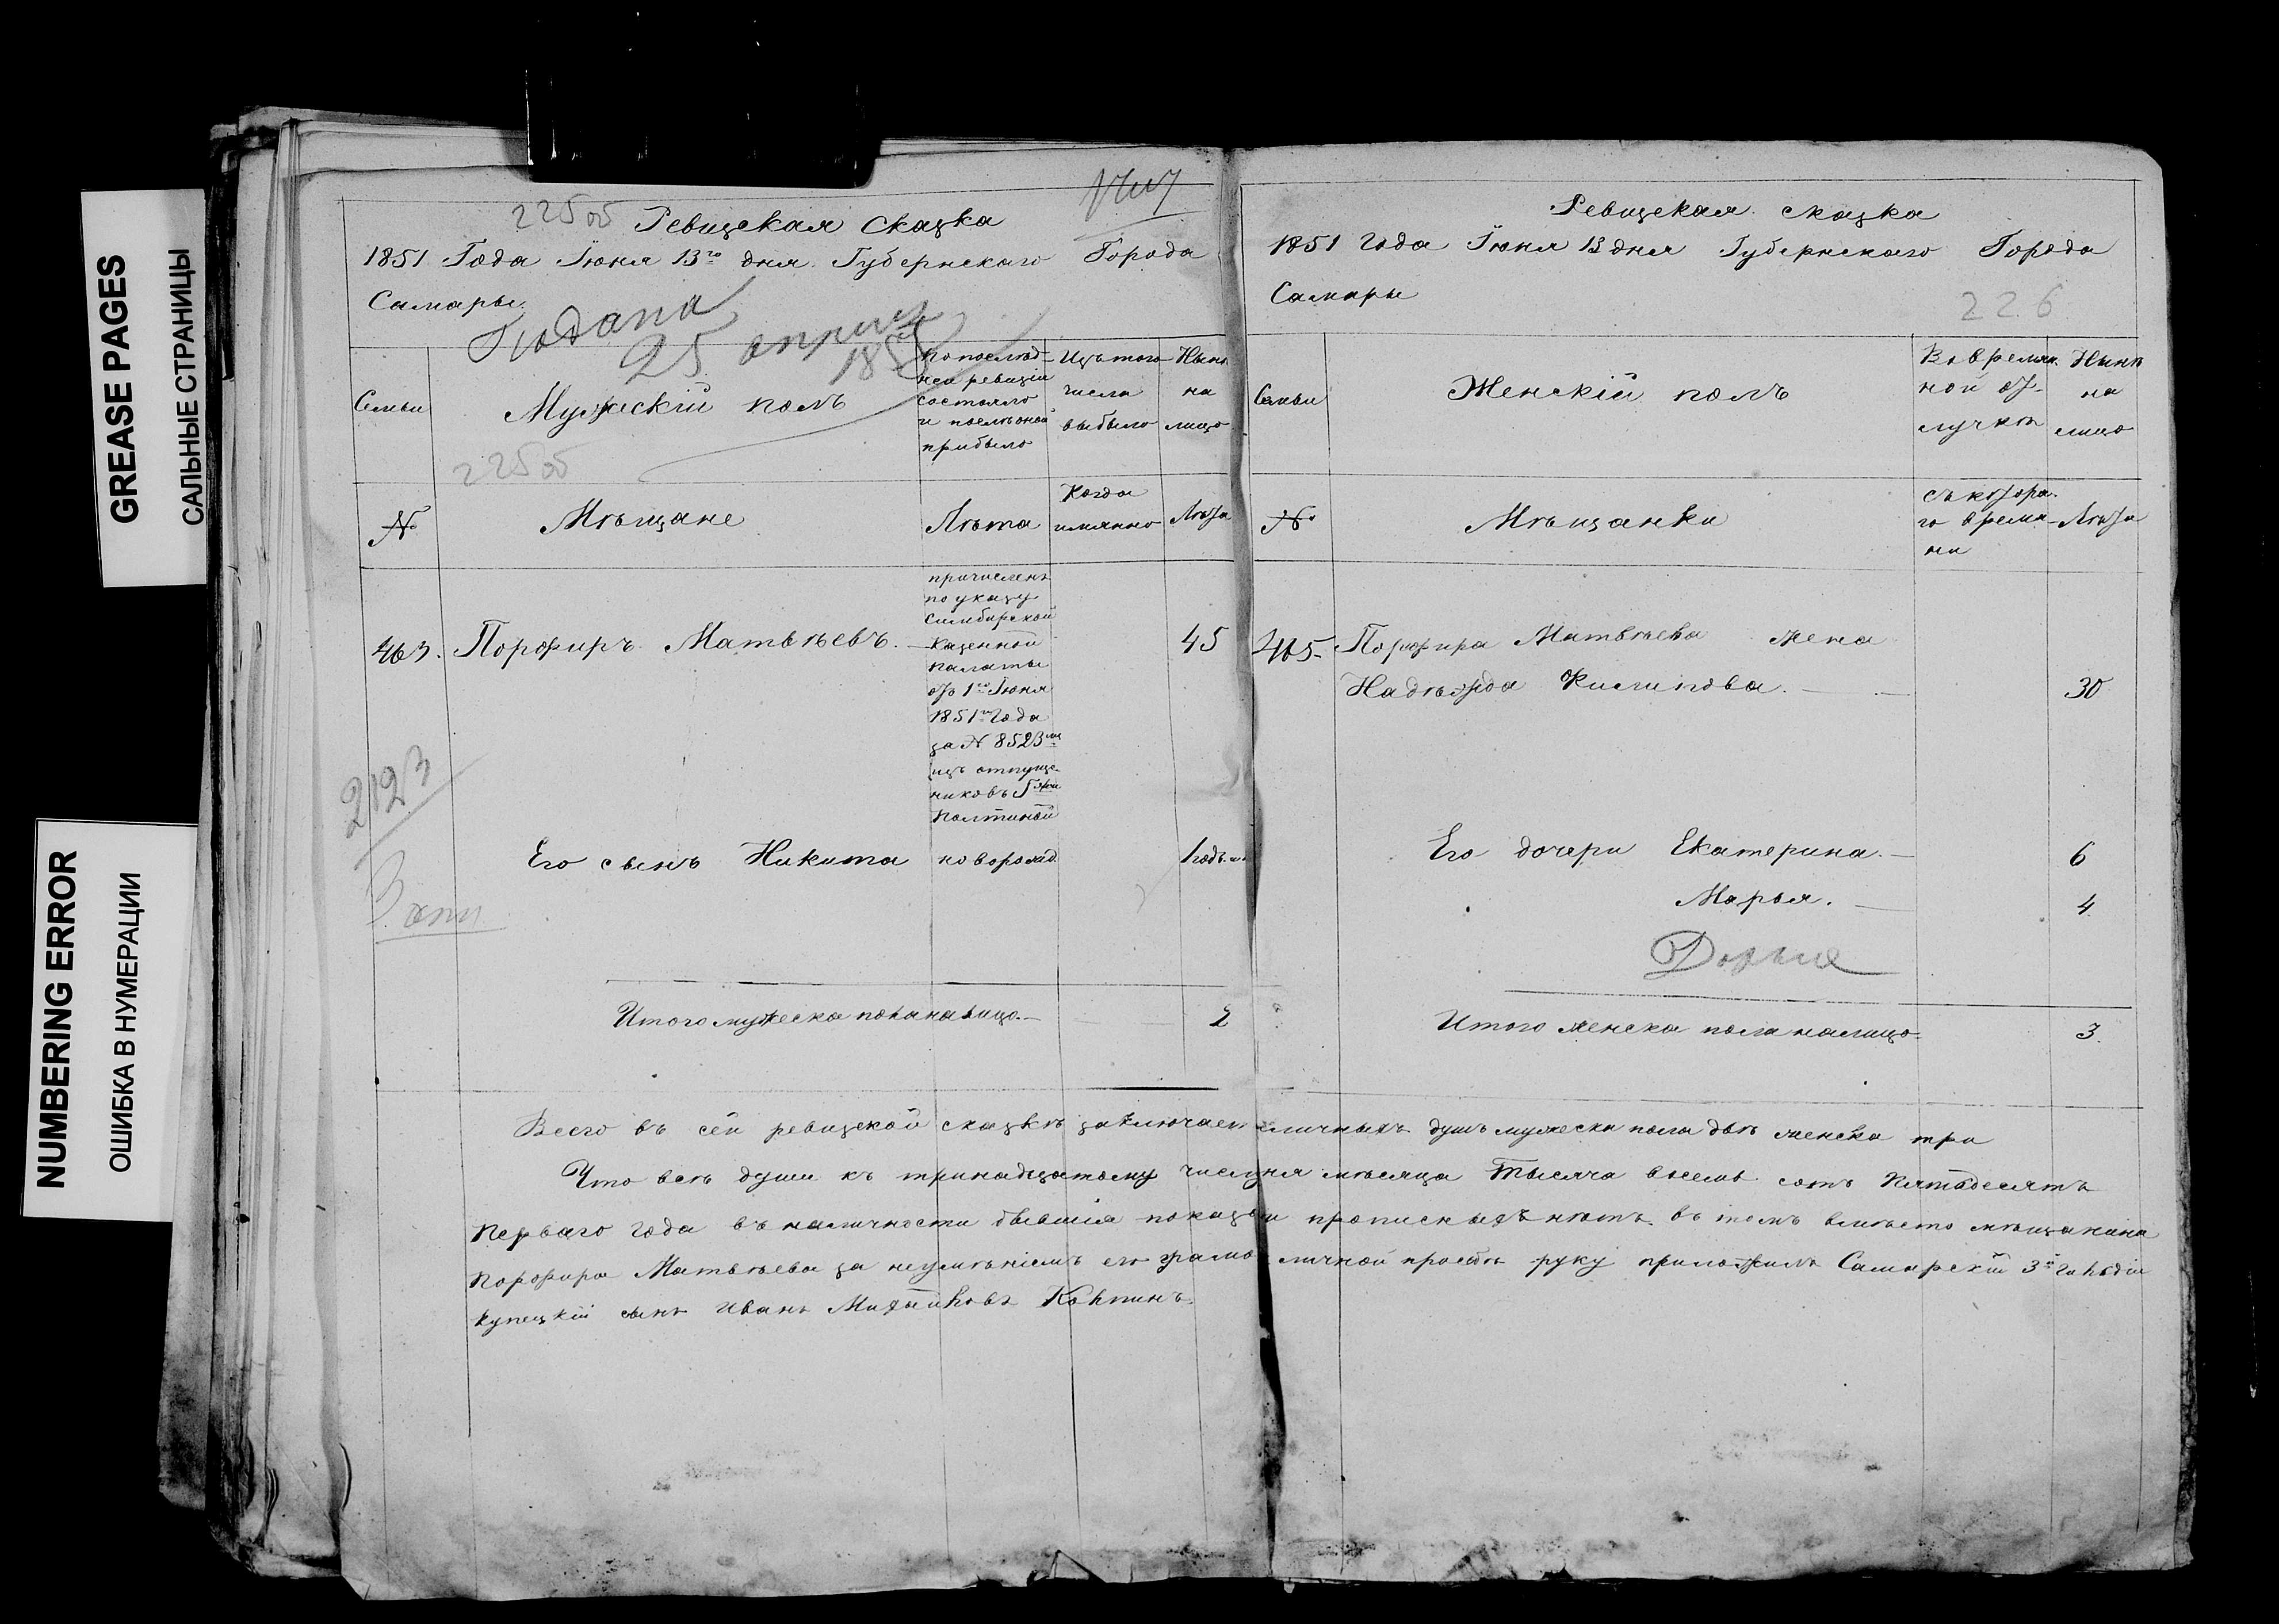 GREASE PAGES
САЛЬНЫЕ СТРАНИЦЫ
NUMBERING ERROR
ОШИБКА В НУМЕРАЦИИ
225 об Ревизская Сказка
1851 Года Іюня 13го дня Губернскаго Города
Самары
Подана
25 апреля
225 об
Семьи
Мужескій полъ
по послѣд-
ней ревизіи
состояло
и послѣ оной
прибыло
Изъ того
числа
выбыло
Нынѣ
на
лицо
№
Мѣщане
Лѣта
Когда
имянно
Лѣта
463. Порфиръ Матвѣевъ.
причисленъ
по указу
Симбирской
Казенной
палаты
отъ 1го Іюня
1851го Года
за № 8523мъ
изъ отпуще-
никовъ Гжи
Полтиной
45
2123
Его сынъ Никита новорожд. 1 годъ
Итого мужеска пола на лицо. 2
Ревизская сказка
1851 года Іюня 13 дня Губернскаго Города
Самары
226
Семьи
Женскій полъ
Во времян-
ной от-
лучкѣ
Нынѣ
на
лицо
№
Мѣщанки
съ котора-
го време-
ни
Лѣта
Порфира Матвѣева жена
Надѣжда Филипова. 30
Его дочери Екатерина. 6
Марья. 4
Дарья
Итого женска пола налицо 3.
Всего въ сей ревизской сказкѣ заключает личныхъ душъ мужеска пола двѣ женска три
Что всѣ души къ тринадцатому числу мѣсяца Тысяча восемь сотъ Пятьдесятъ
перваго года въ наличности бывшія показаны прописныхъ нѣтъ. въ томъ вмѣсто мѣщанина
Порфира Матвѣева за неумѣніемъ его грамо личной прозьбѣ руку приложилъ Самарскій 3й Гильдіи
купецкій сынъ Иванъ Михайловъ